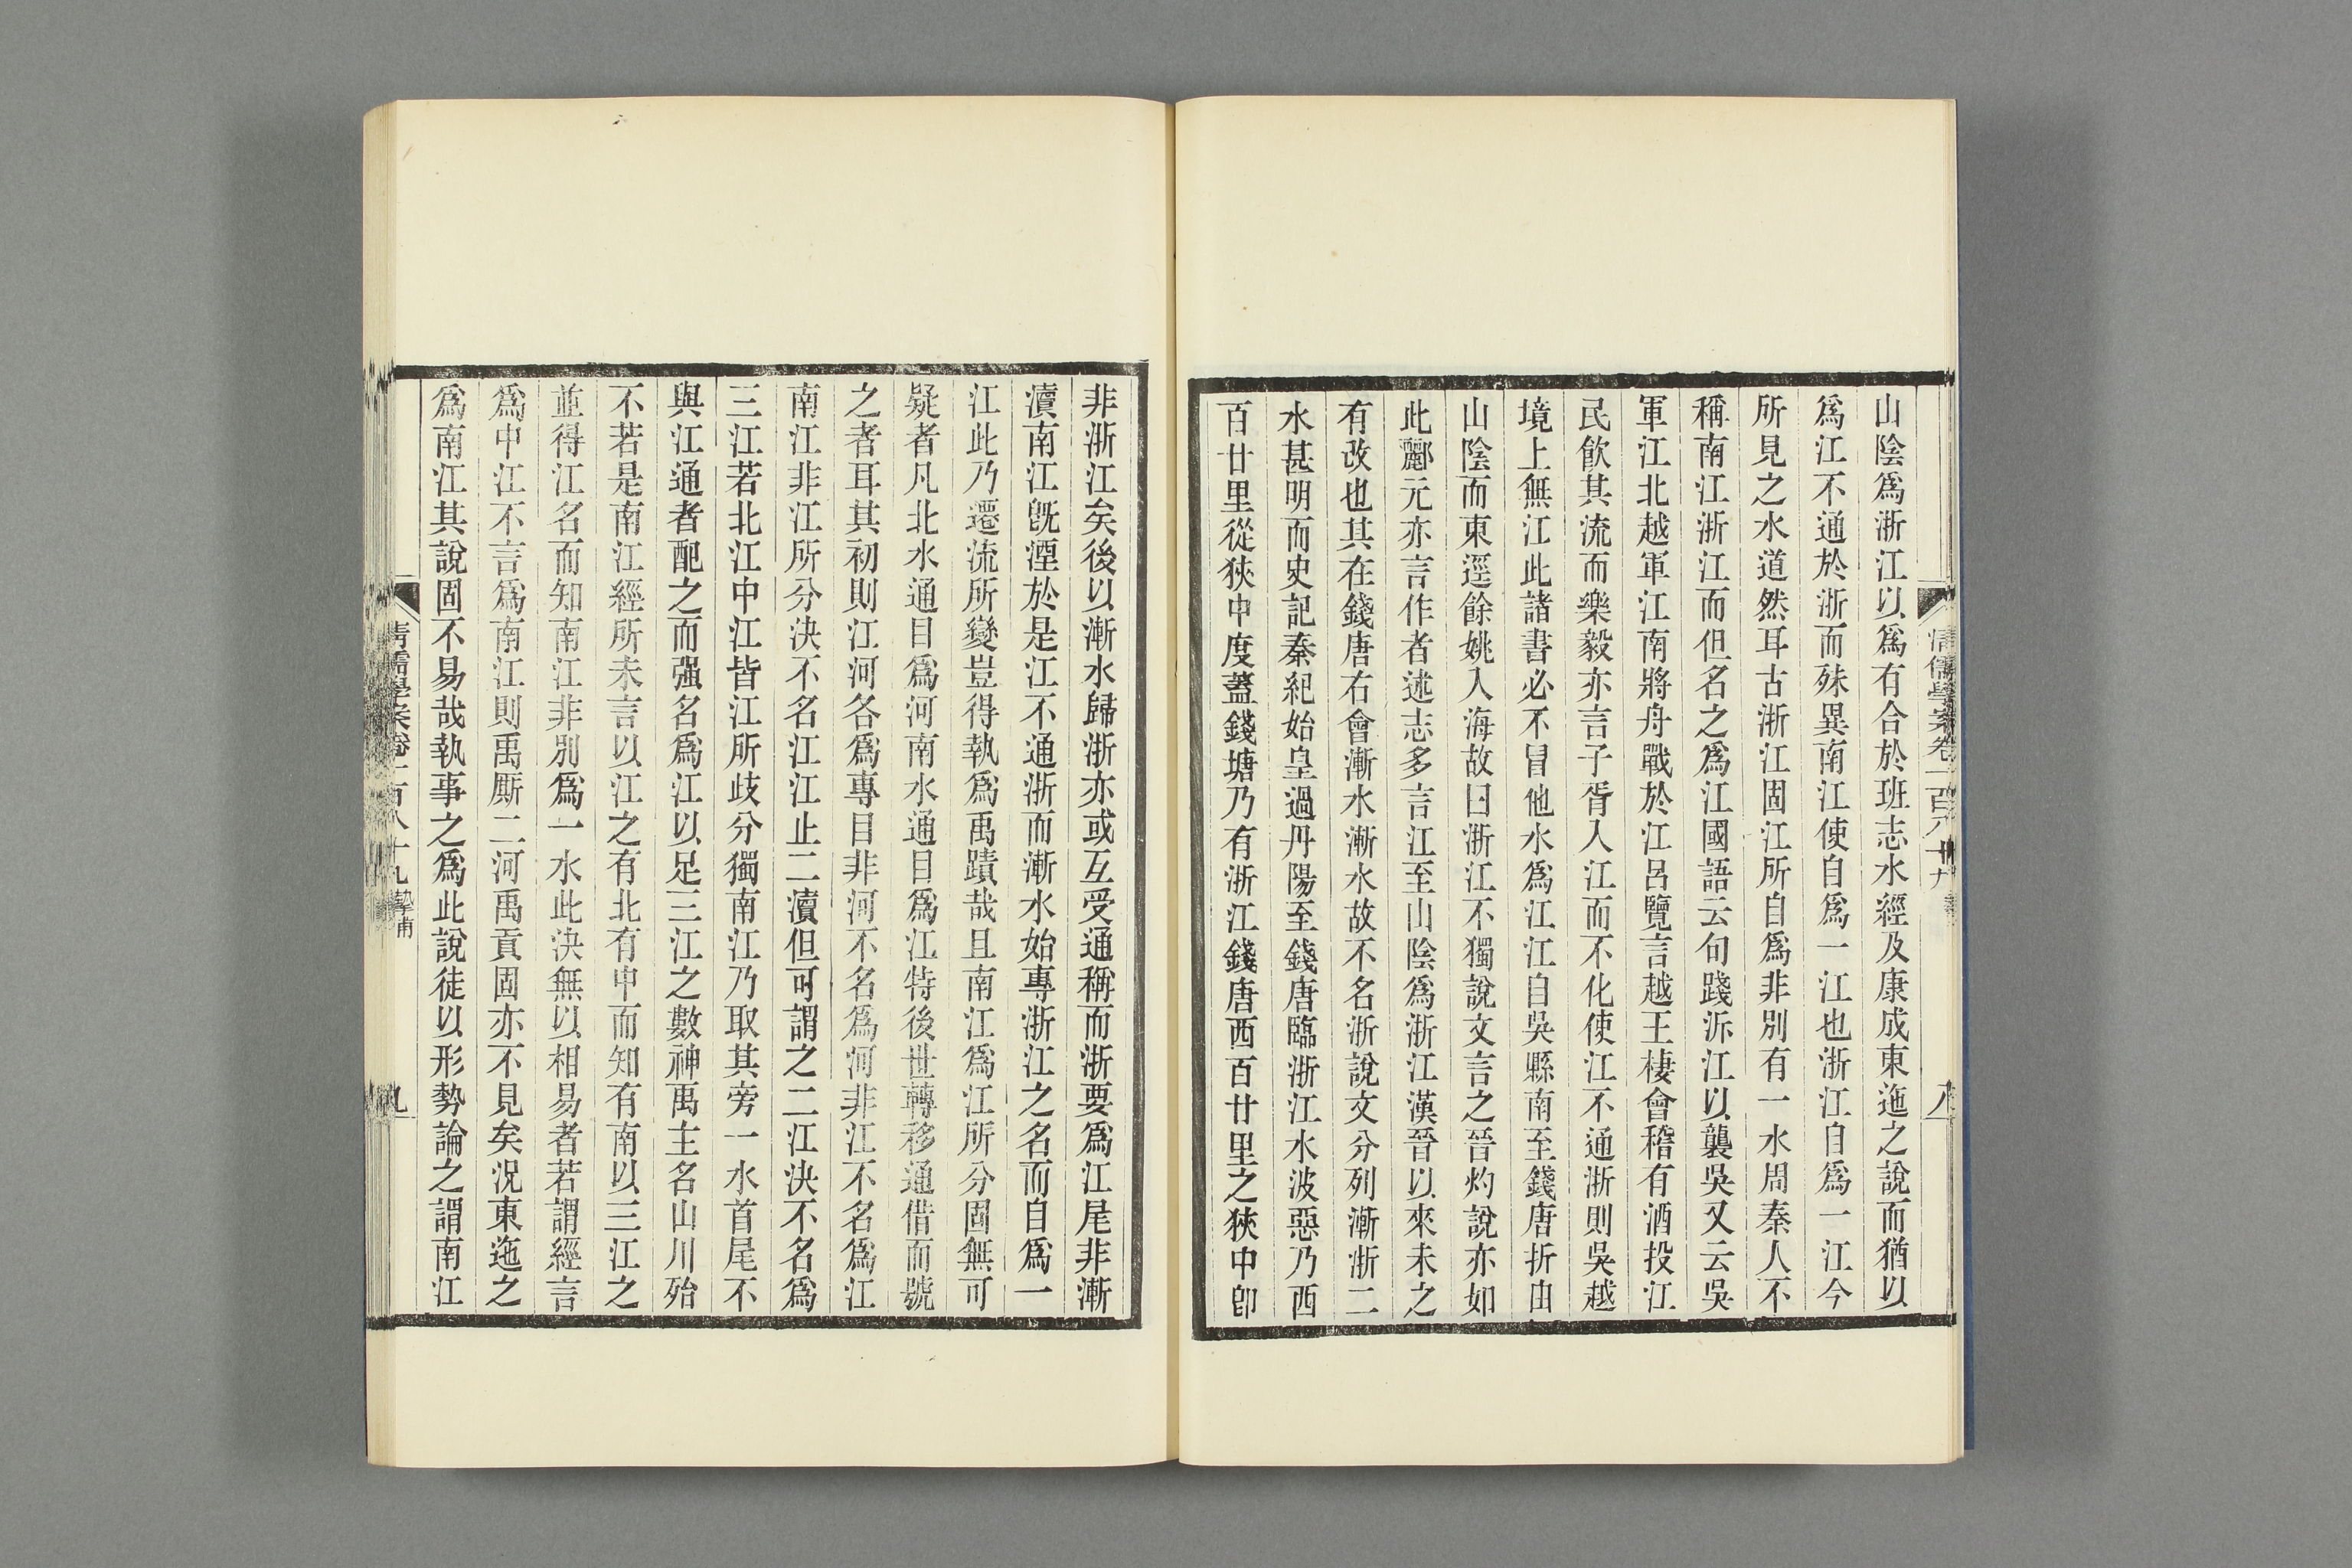 清儒學案卷一百八十九
八
山陰爲浙江以爲有合於班志水經及康成東迤之說而猶以
爲江不通於浙而殊異南江使自爲一江也浙江自爲一江今
所見之水道然耳古浙江固江所自爲非別有一水周秦人不
稱南江浙江而但名之爲江國語云句踐泝江以襲吳又云吳
軍江北越軍江南將舟戰於江呂覽言越王棲會稽有酒投江
民飲其流而樂毅亦言子胥入江而不化使江不通浙則吳越
境上無江此諸書必不冒他水爲江江自吳縣南至錢唐折由
山陰而東逕餘姚入海故曰浙江不獨說文言之晉灼說亦如
此酈元亦言作者述志多言江至山陰爲浙江漢晉以來未之
有改也其在錢唐右會漸水漸水故不名浙說文分列漸浙二
水甚明而史記秦紀始皇過丹陽至錢唐臨浙江水波惡乃西
百廿里從狹中度蓋錢塘乃有浙江錢唐西百廿里之狹中卽
非浙江矣後以漸水歸浙亦或互受通稱而浙要爲江尾非漸
瀆南江旣湮於是江不通浙而漸水始專浙江之名而自爲一
江此乃遷流所變豈得執爲禹蹟哉且南江爲江所分固無可
疑者凡北水通目爲河南水通目爲江特後世轉移通借而號
之者耳其初則江河各爲專目非河不名爲河非江不名爲江
南江非江所分決不名江江止二瀆但可謂之二江決不名爲
三江若北江中江皆江所歧分獨南江乃取其旁一水首尾不
與江通者配之而强名爲江以足三江之數神禹主名山川殆
不若是南江經所未言以江之有北有中而知有南以三江之
並得江名而知南江非別爲一水此決無以相易者若謂經言
爲中江不言爲南江則禹厮二河禹貢固亦不見矣況東迤之
爲南江其說固不易哉執事之爲此說徒以形勢論之謂南江
清儒學案卷一百八十九 摯甫
九